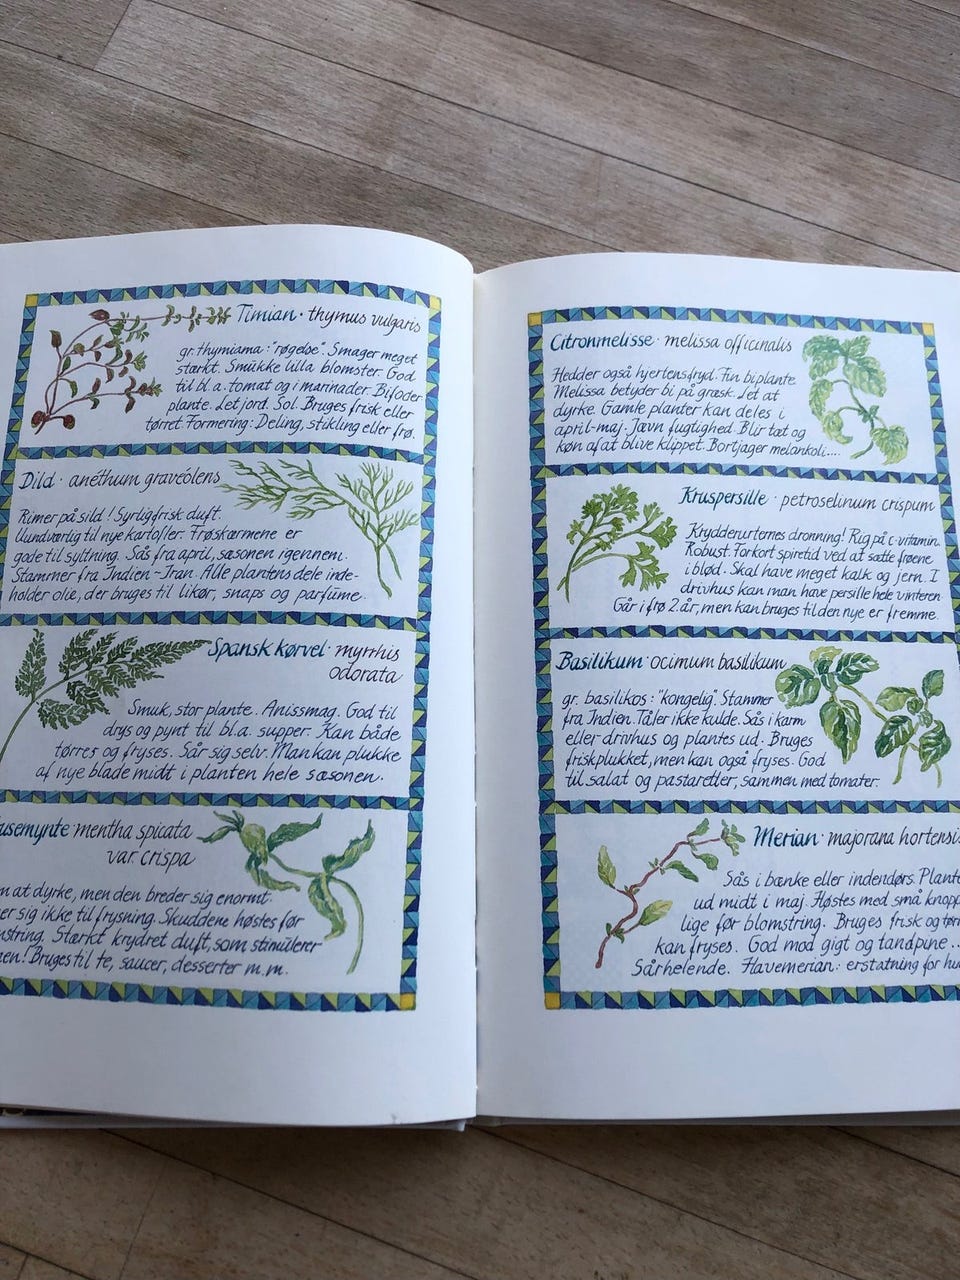 Timian · thymus vulgaris
gr. thymiama: "røgelse". Smager meget
stærkt. Smukke lilla blomster. God
til bl.a. tomat og i marinader. Bifoder
plante. Let jord. Sol. Bruges frisk eller
tørret. Formering: Deling, stikling eller frø.
Dild · anéthum gravéolens
Rimer på sild! Syrlig frisk duft.
Uundværlig til nye kartofler. Frøskærmene er
gode til syltning. Sås fra april, sæsonen igennem.
Stammer fra Indien-Iran. Alle plantens dele inde-
holder olie, der bruges til likør, snaps og parfume.
Spansk kørvel · myrrhis
odorata
Smuk, stor plante. Anissmag. God til
drys og pynt til bl.a. supper. Kan både
tørres og fryses. Sår sig selv. Man kan plukke
af nye blade midt i planten hele sæsonen.
usemynte · mentha spicata
var. crispa
m at dyrke, men den breder sig enormt.
er sig ikke til frysning. Skuddene høstes før
mstring. Stærkt krydret duft, som stimulerer
en! Bruges til te, saucer, desserter m.m.
Citronmelisse · melissa officinalis
Hedder også hjertensfryd. Fin biplante.
Melissa betyder bi på græsk. Let at
dyrke. Gamle planter kan deles i
april-maj. Jævn fugtighed. Blir tæt og
køn af at blive klippet. Bortjager melankoli....
Kruspersille · petroselinum crispum
Krydderurternes dronning! Rig på c-vitamin.
Robust. Forkort spiretid ved at sætte frøene
i blød. Skal have meget kalk og jern. I
drivhus kan man have persille hele vinteren.
Går i frø 2 år, men kan bruges til den nye er fremme.
Basilikum · ocimum basilikum
gr. basilikos: "kongelig". Stammer
fra Indien. Tåler ikke kulde. Sås i karm
eller drivhus og plantes ud. Bruges
friskplukket, men kan også fryses. God
til salat og pastaretter, sammen med tomater.
Merian · majorana hortensis
Sås i bænke eller indendørs. Plant
ud midt i maj. Høstes med små knopp
lige før blomstring. Bruges frisk og tørr
kan fryses. God mod gigt og tandpine..
Sårhelende. Havemerian: erstatning for hu